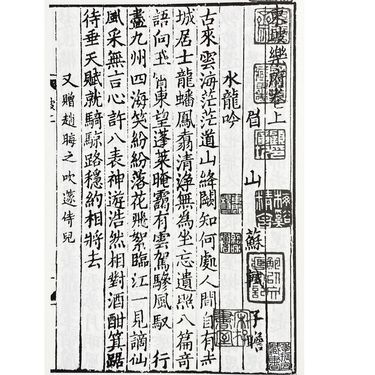 東坡樂府卷上
眉山 蘇軾 子瞻
水龍吟
古來雲海茫茫道山絳闕知何處人間自有赤
城居士龍蟠鳳翥清淨無為坐忘遺照八篇奇
語向玉霄東望蓬萊晻靄有雲駕驂風馭 行
盡九州四海笑紛紛落花飛絮臨江一見謫仙
風采無言心許八表神遊浩然相對酒酣箕踞
待垂天賦就騎鯨路穩約相將去
又贈趙晦之吹篴侍兒